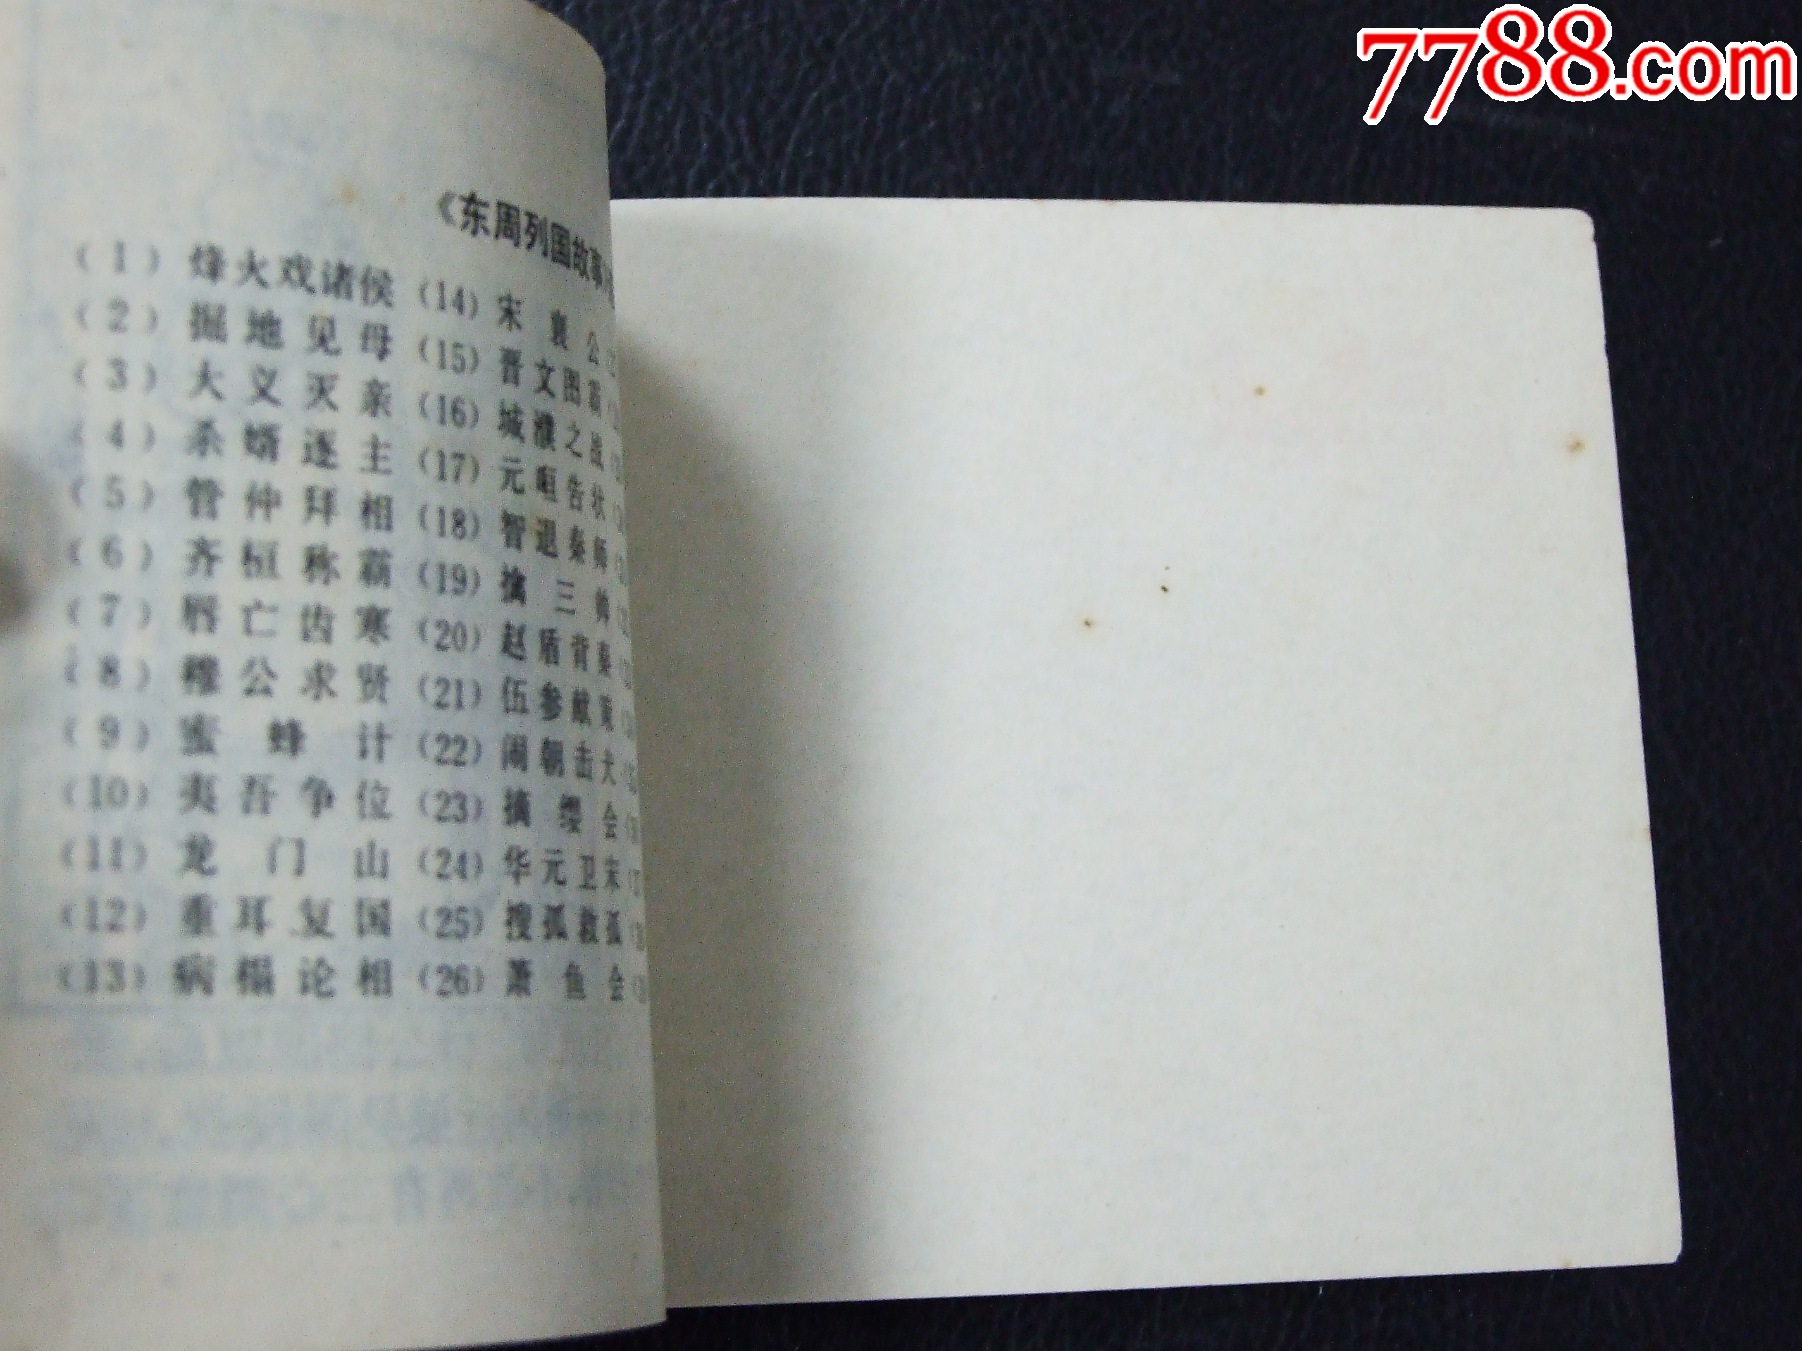 7788.com
《东周列国故事》
(1) 烽火戏诸侯 (14) 宋襄公
(2) 掘地见母 (15) 晋文图霸
(3) 大义灭亲 (16) 城濮之战
(4) 杀婿逐主 (17) 元咺告状
(5) 管仲拜相 (18) 智退秦师
(6) 齐桓称霸 (19) 擒三帅
(7) 唇亡齿寒 (20) 赵盾背秦
(8) 穆公求贤 (21) 伍参献策
(9) 蜜蜂计 (22) 闹朝击犬
(10) 夷吾争位 (23) 摘缨会
(11) 龙门山 (24) 华元卫宋
(12) 重耳复国 (25) 搜孤救孤
(13) 病榻论相 (26) 萧鱼会